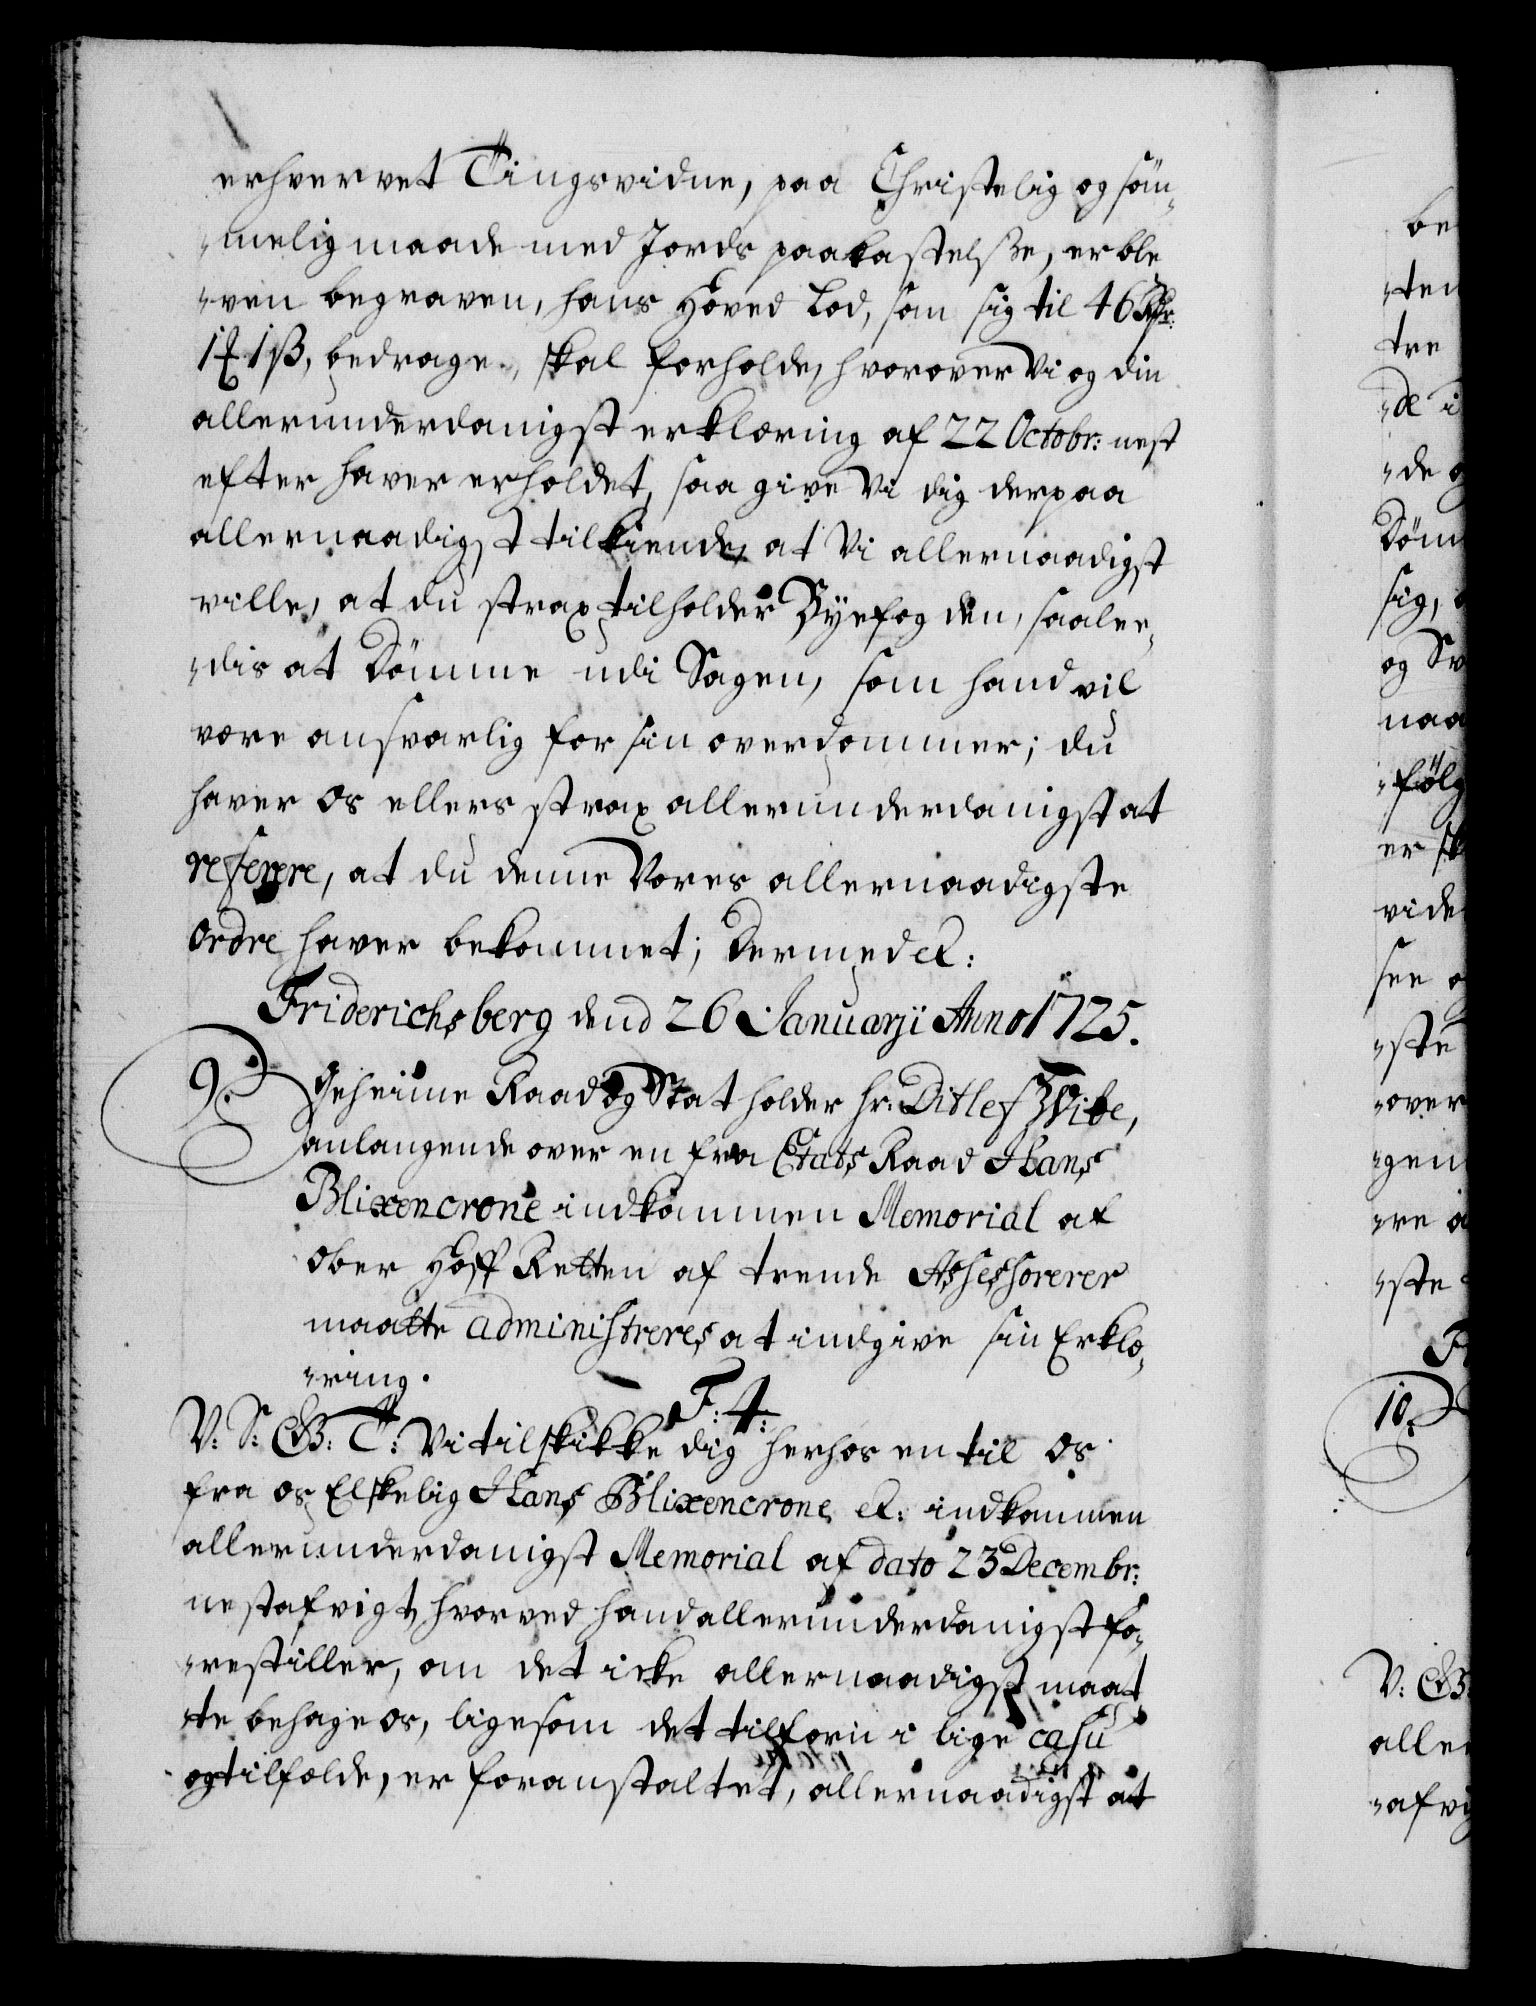 erhvervet Tingsvidne, paa Christelig og söm¬
"melig maade med Jords paakastelsze, er ble
"ven begraven, hans Hoved Lod, som sig til 46 Rdr:
1 1ß, bedrage, skal forholde, hvorover Vi og din
allerunderdanigst erklæring af 22 Octobr: nest
efter haver erholdet, saa give Vi dig derpaa
allernaadigst tilkiende, at Vi allernaadigst
ville, at du strax tilholder Byefogden, saalee¬
"dis at Dömme udi Sagen, som hand vil
være ansvarlig for sin overdommer; du
haver os ellers strax allerunderdanigst at
referere, at du denne Vores allernaadigste
Ordre haver bekommet; Dermed etc:
Friderichsberg dend 26 Januarji Anno 1725.
9. Geheime Raad og Statholder hr: Ditlef Wibe,
anlangende over en fra Etats Raad Hans
Blixencrone indkommen Memorial at
Ober Hoff Retten af trende Assessorerer
maatte administreres, at indgive sin Erklæ¬
"ring.
F: 4:
V: S: G: T: Vi tilskikke dig herhos en til Os
fra os Elskelig Hans Blixencrone etc: indkommen
allerunderdanigst Memorial af dato 23 Decembr:
nestafvigt, hvorved hand allerunderdanigst fo¬
"restiller, om det icke allernaadigst maat
"te behage os, ligesom det tilforn i lige casu
og tilfælde, er foranstaltet, allernaadigst at
be
"ten
tre
"de i
"de o
Döm
sig,
og Sv
naa
"følg
er sk
vide
see o
"ste
"over
"gen
"re a
"ste
F
10.
V: G:
alle
"afvi